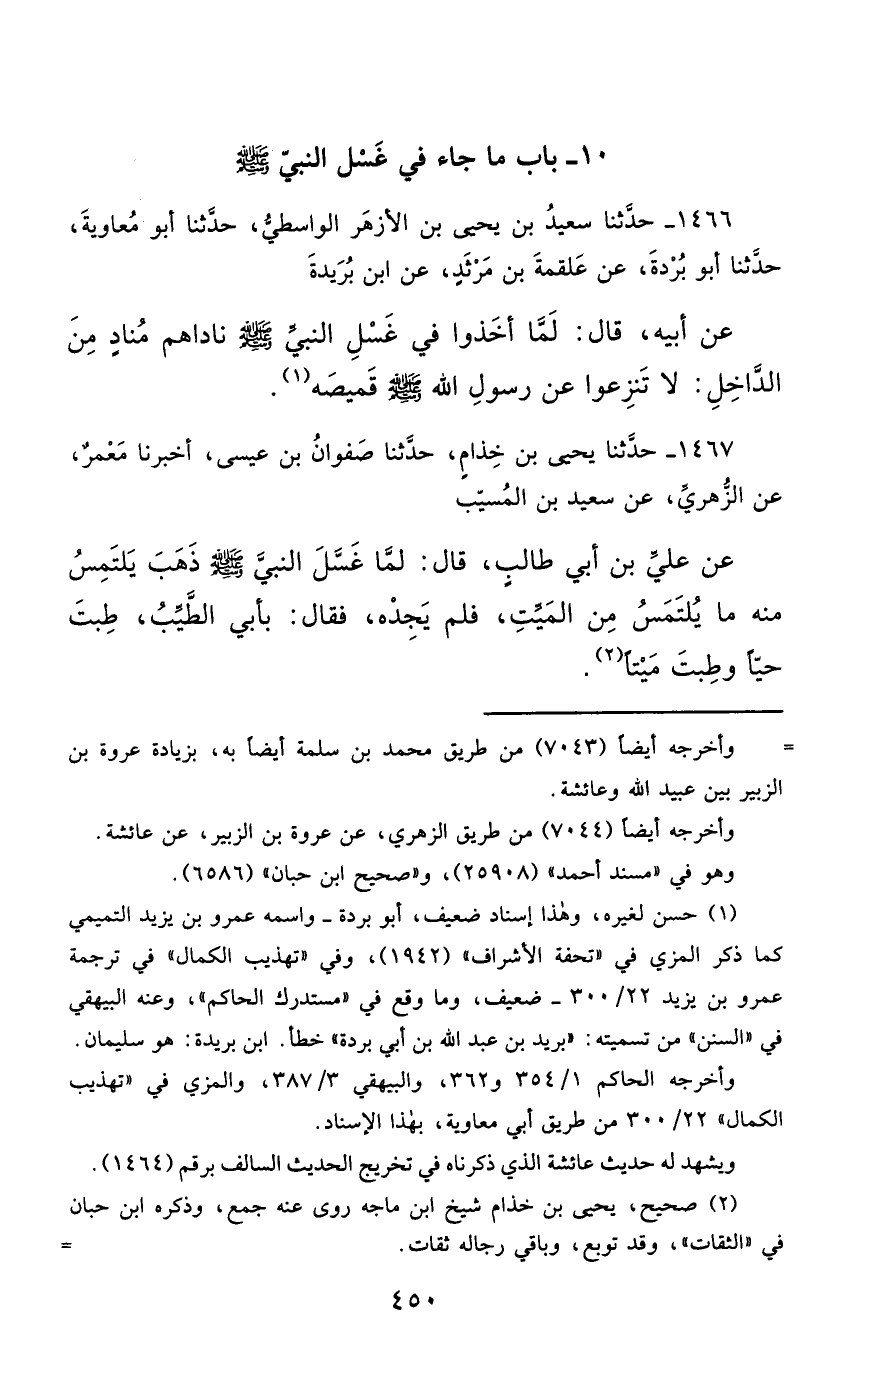 ١٠- باب ما جاء في غَسْل النبيّ ﷺ
١٤٦٦- حدَّثنا سعيدُ بن يحيى بن الأزهَر الواسطيُّ، حدَّثنا أبو مُعاويةَ،
حدَّثنا أبو بُرْدةَ، عن عَلقمةَ بن مَرْثَدٍ، عن ابن بُرَيدةَ
عن أبيه، قال: لَمَّا أخَذوا في غَسْلِ النبيِّ ﷺ ناداهم مُنادٍ مِنَ
الدَّاخِلِ: لا تَنزِعوا عن رسولِ الله ﷺ قَميصَه(١).
١٤٦٧- حدَّثنا يحيى بن خِذامٍ، حدَّثنا صَفوانُ بن عيسى، أخبرنا مَعْمرٌ،
عن الزُّهريِّ، عن سعيد بن المُسيّب
عن عليِّ بن أبي طالبٍ، قال: لمَّا غَسَّلَ النبيَّ ﷺ ذَهَبَ يَلتَمِسُ
منه ما يُلتَمَسُ مِن المَيِّتِ، فلم يَجِدْه، فقال: بأبي الطَّيِّبُ، طِبتَ
حيّاً وطِبتَ مَيْتاً(٢).
= وأخرجه أيضاً (٧٠٤٣) من طريق محمد بن سلمة أيضاً به، بزيادة عروة بن
الزبير بين عبيد الله وعائشة.
وأخرجه أيضاً (٧٠٤٤) من طريق الزهري، عن عروة بن الزبير، عن عائشة.
وهو في «مسند أحمد» (٢٥٩٠٨)، و«صحيح ابن حبان» (٦٥٨٦).
(١) حسن لغيره، وهٰذا إسناد ضعيف، أبو بردة - واسمه عمرو بن يزيد التميمي
كما ذكر المزي في «تحفة الأشراف» (١٩٤٢)، وفي «تهذيب الكمال» في ترجمة
عمرو بن يزيد ٢٢/ ٣٠٠ - ضعيف، وما وقع في «مستدرك الحاكم»، وعنه البيهقي
في «السنن» من تسميته: «بريد بن عبد الله بن أبي بردة» خطأ. ابن بريدة: هو سليمان.
وأخرجه الحاكم ١/ ٣٥٤ و٣٦٢، والبيهقي ٣/ ٣٨٧، والمزي في «تهذيب
الكمال» ٢٢/ ٣٠٠ من طريق أبي معاوية، بهٰذا الإسناد.
ويشهد له حديث عائشة الذي ذكرناه في تخريج الحديث السالف برقم (١٤٦٤).
(٢) صحيح، يحيى بن خذام شيخ ابن ماجه روى عنه جمع، وذكره ابن حبان
في «الثقات»، وقد توبع، وباقي رجاله ثقات. =
٤٥٠